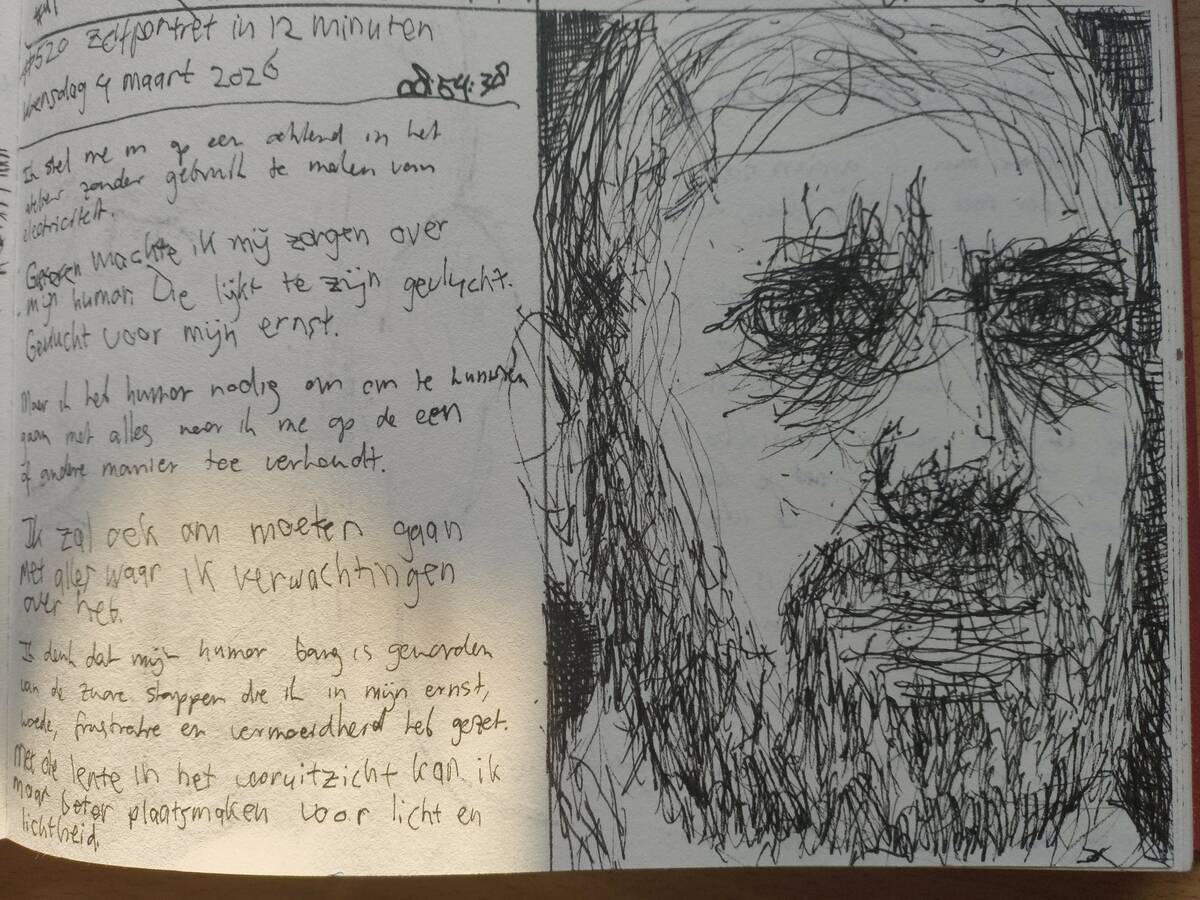 #520 zelfportret in 12 minuten
Woensdag 4 maart 2026
54:38
Ik stel me in op een ochtend in het
atelier zonder gebruik te maken van
electriciteit.
Gisteren maakte ik mij zorgen over
mijn humor. Die lijkt te zijn gevlucht.
Gevlucht voor mijn ernst.
Maar ik heb humor nodig om om te kunnen
gaan met alles waar ik me op de een
of andere manier toe verhoudt.
Ik zal ook om moeten gaan
met alles waar ik verwachtingen
over heb.
Ik denk dat mijn humor bang is geworden
van de zware stappen die ik in mijn ernst,
woede, frustratie en vermoeidheid heb gezet.
Met de lente in het vooruitzicht kan ik
maar beter plaatsmaken voor licht en
lichtheid.